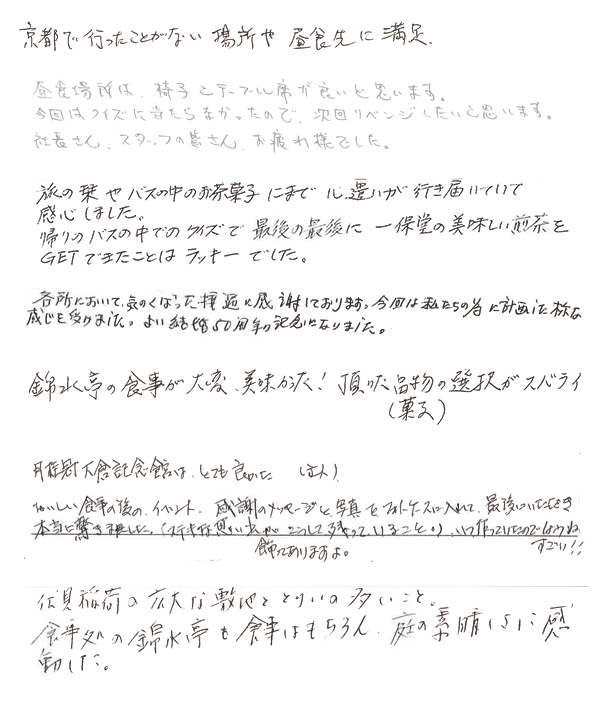 京都で行ったことがない場所や昼食先に満足.
昼食場所は、椅子とテーブル席が良いと思います。
今回はクイズに当たらなかったので、次回リベンジしたいと思います。
社長さん、スタッフの皆さん、お疲れ様でした。
旅の栞やバスの中のお茶菓子にまで心遣いが行き届いていて
感心しました。
帰りのバスの中でのクイズで最後の最後に一保堂の美味しい煎茶を
GETできたことはラッキーでした。
各所において、気のくばった接遇に感謝しております。今回は私たちの為に計画した様な
感じを受けました。よい結婚50周年の記念になりました。
錦水亭の食事が大変、美味かった! 頂いた品物の選択がスバライ
(菓子)
月桂冠大倉記念館は、とても良かった (主人)
おいしい食事の後の、イベント、感謝のメッセージと、写真をフォトケースに入れて、最後にいただき
本当に驚きました。(ステキな思い出が、こうして残っていること。)いつ作っていたのでしょうね
飾ってありますよ。 すごい!!
伏見稲荷の広大な敷地ととりいの多いこと。
食事処の錦水亭も食事はもちろん、庭の素晴しさに感
動した。